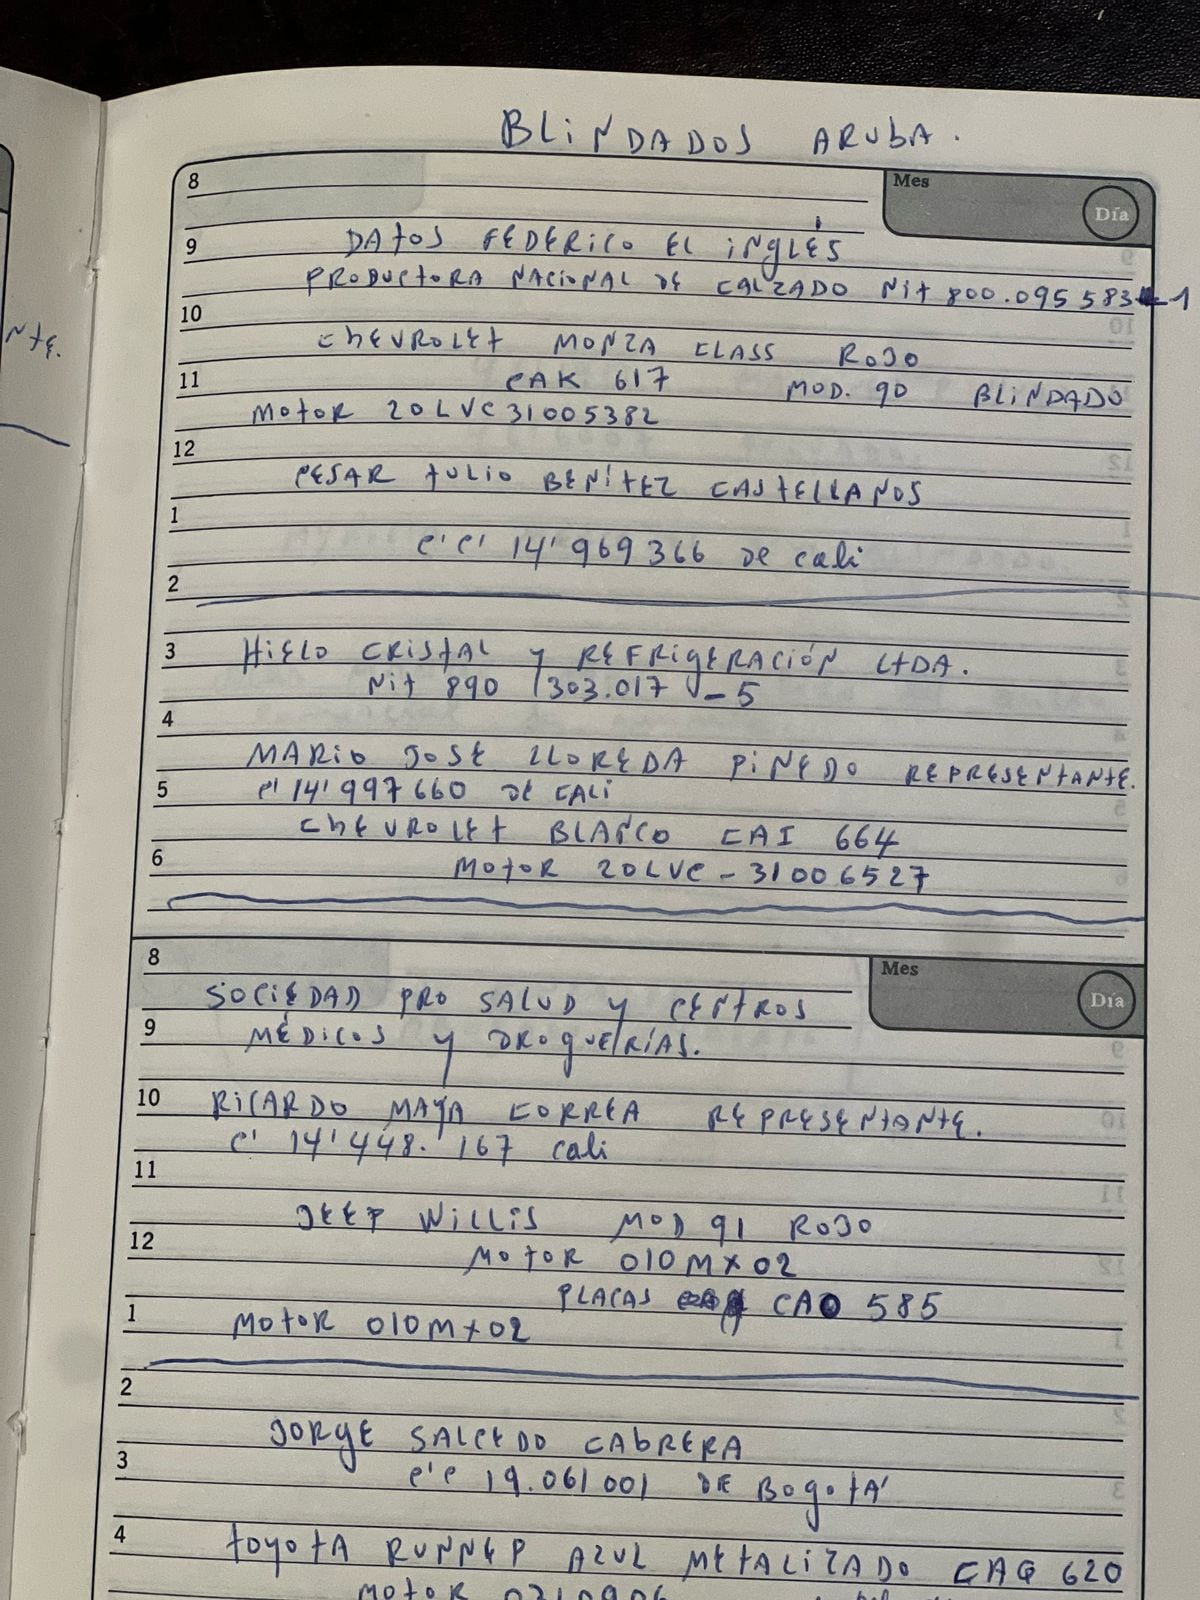 BLINDADOS ARUBA.
8
Mes
Día
9 DATOS FEDERICO EL INGLÉS
PRODUCTORA NACIONAL DE CALZADO Nit 800.095 583-1
10
CHEVROLET MONZA CLASS ROJO
11 CAK 617 MOD. 90 BLINDADO
MOTOR 20LVC31005382
12
CESAR TULIO BENÍTEZ CASTELLANOS
1
C'C' 14'969366 DE Cali
2
3 HIELO CRISTAL Y REFRIGERACIÓN LTDA.
Nit 890 303.017 - 5
4
MARIO JOSE LLOREDA PIÑEDO REPRESENTANTE.
5 C' 14'997660 DE CALI
CHEVROLET BLANCO CAI 664
6 MOTOR 20LVC - 31006527
8
Mes
Día
SOCIEDAD PRO SALUD Y CENTROS
9 MÉDICOS Y DROGUERÍAS.
10 RICARDO MAYA CORREA REPRESENTANTE.
C' 14'448.167 Cali
11
JEEP WILLIS MOD 91 ROJO
12 MOTOR 010MX02
PLACAS CAO 585
1 MOTOR 010MX02
2
JORGE SALCEDO CABRERA
3 C'C 19.061001 DE BOGOTÁ
4 TOYOTA RUNNER AZUL METALIZADO CAQ 620
MOTOR
NTE.